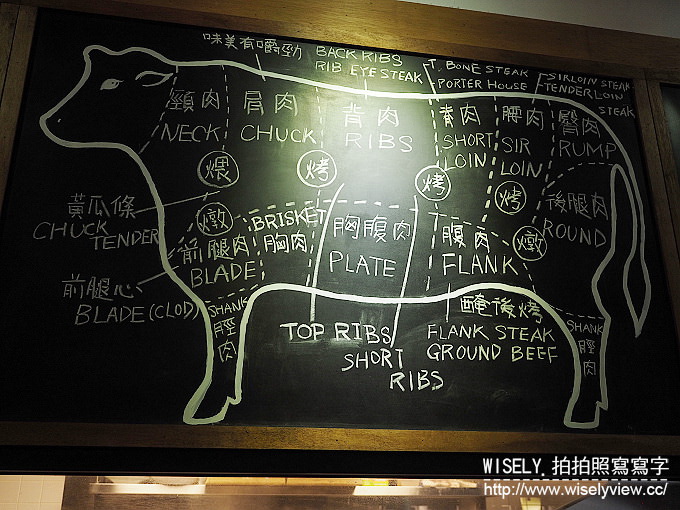 味美有嚼勁
BACK RIBS
RIB EYE STEAK
T. BONE STEAK
PORTER HOUSE
SIRLOIN STEAK
TENDERLOIN
STEAK
頸肉
NECK
肩肉
CHUCK
背肉
RIBS
脊肉
SHORT
LOIN
腰肉
SIR
LOIN
臀肉
RUMP
煨
烤
烤
烤
後腿肉
ROUND
黃瓜條
CHUCK
TENDER
燉
前腿肉
BLADE
BRISKET
胸肉
胸腹肉
PLATE
腹肉
FLANK
燉
前腿心
BLADE(CLOD)
SHANK
脛肉
TOP RIBS
SHORT
RIBS
醃後烤
FLANK STEAK
GROUND BEEF
SHANK
脛肉
WISELY. 拍拍照寫寫字
http://www.wiselyview.cc/